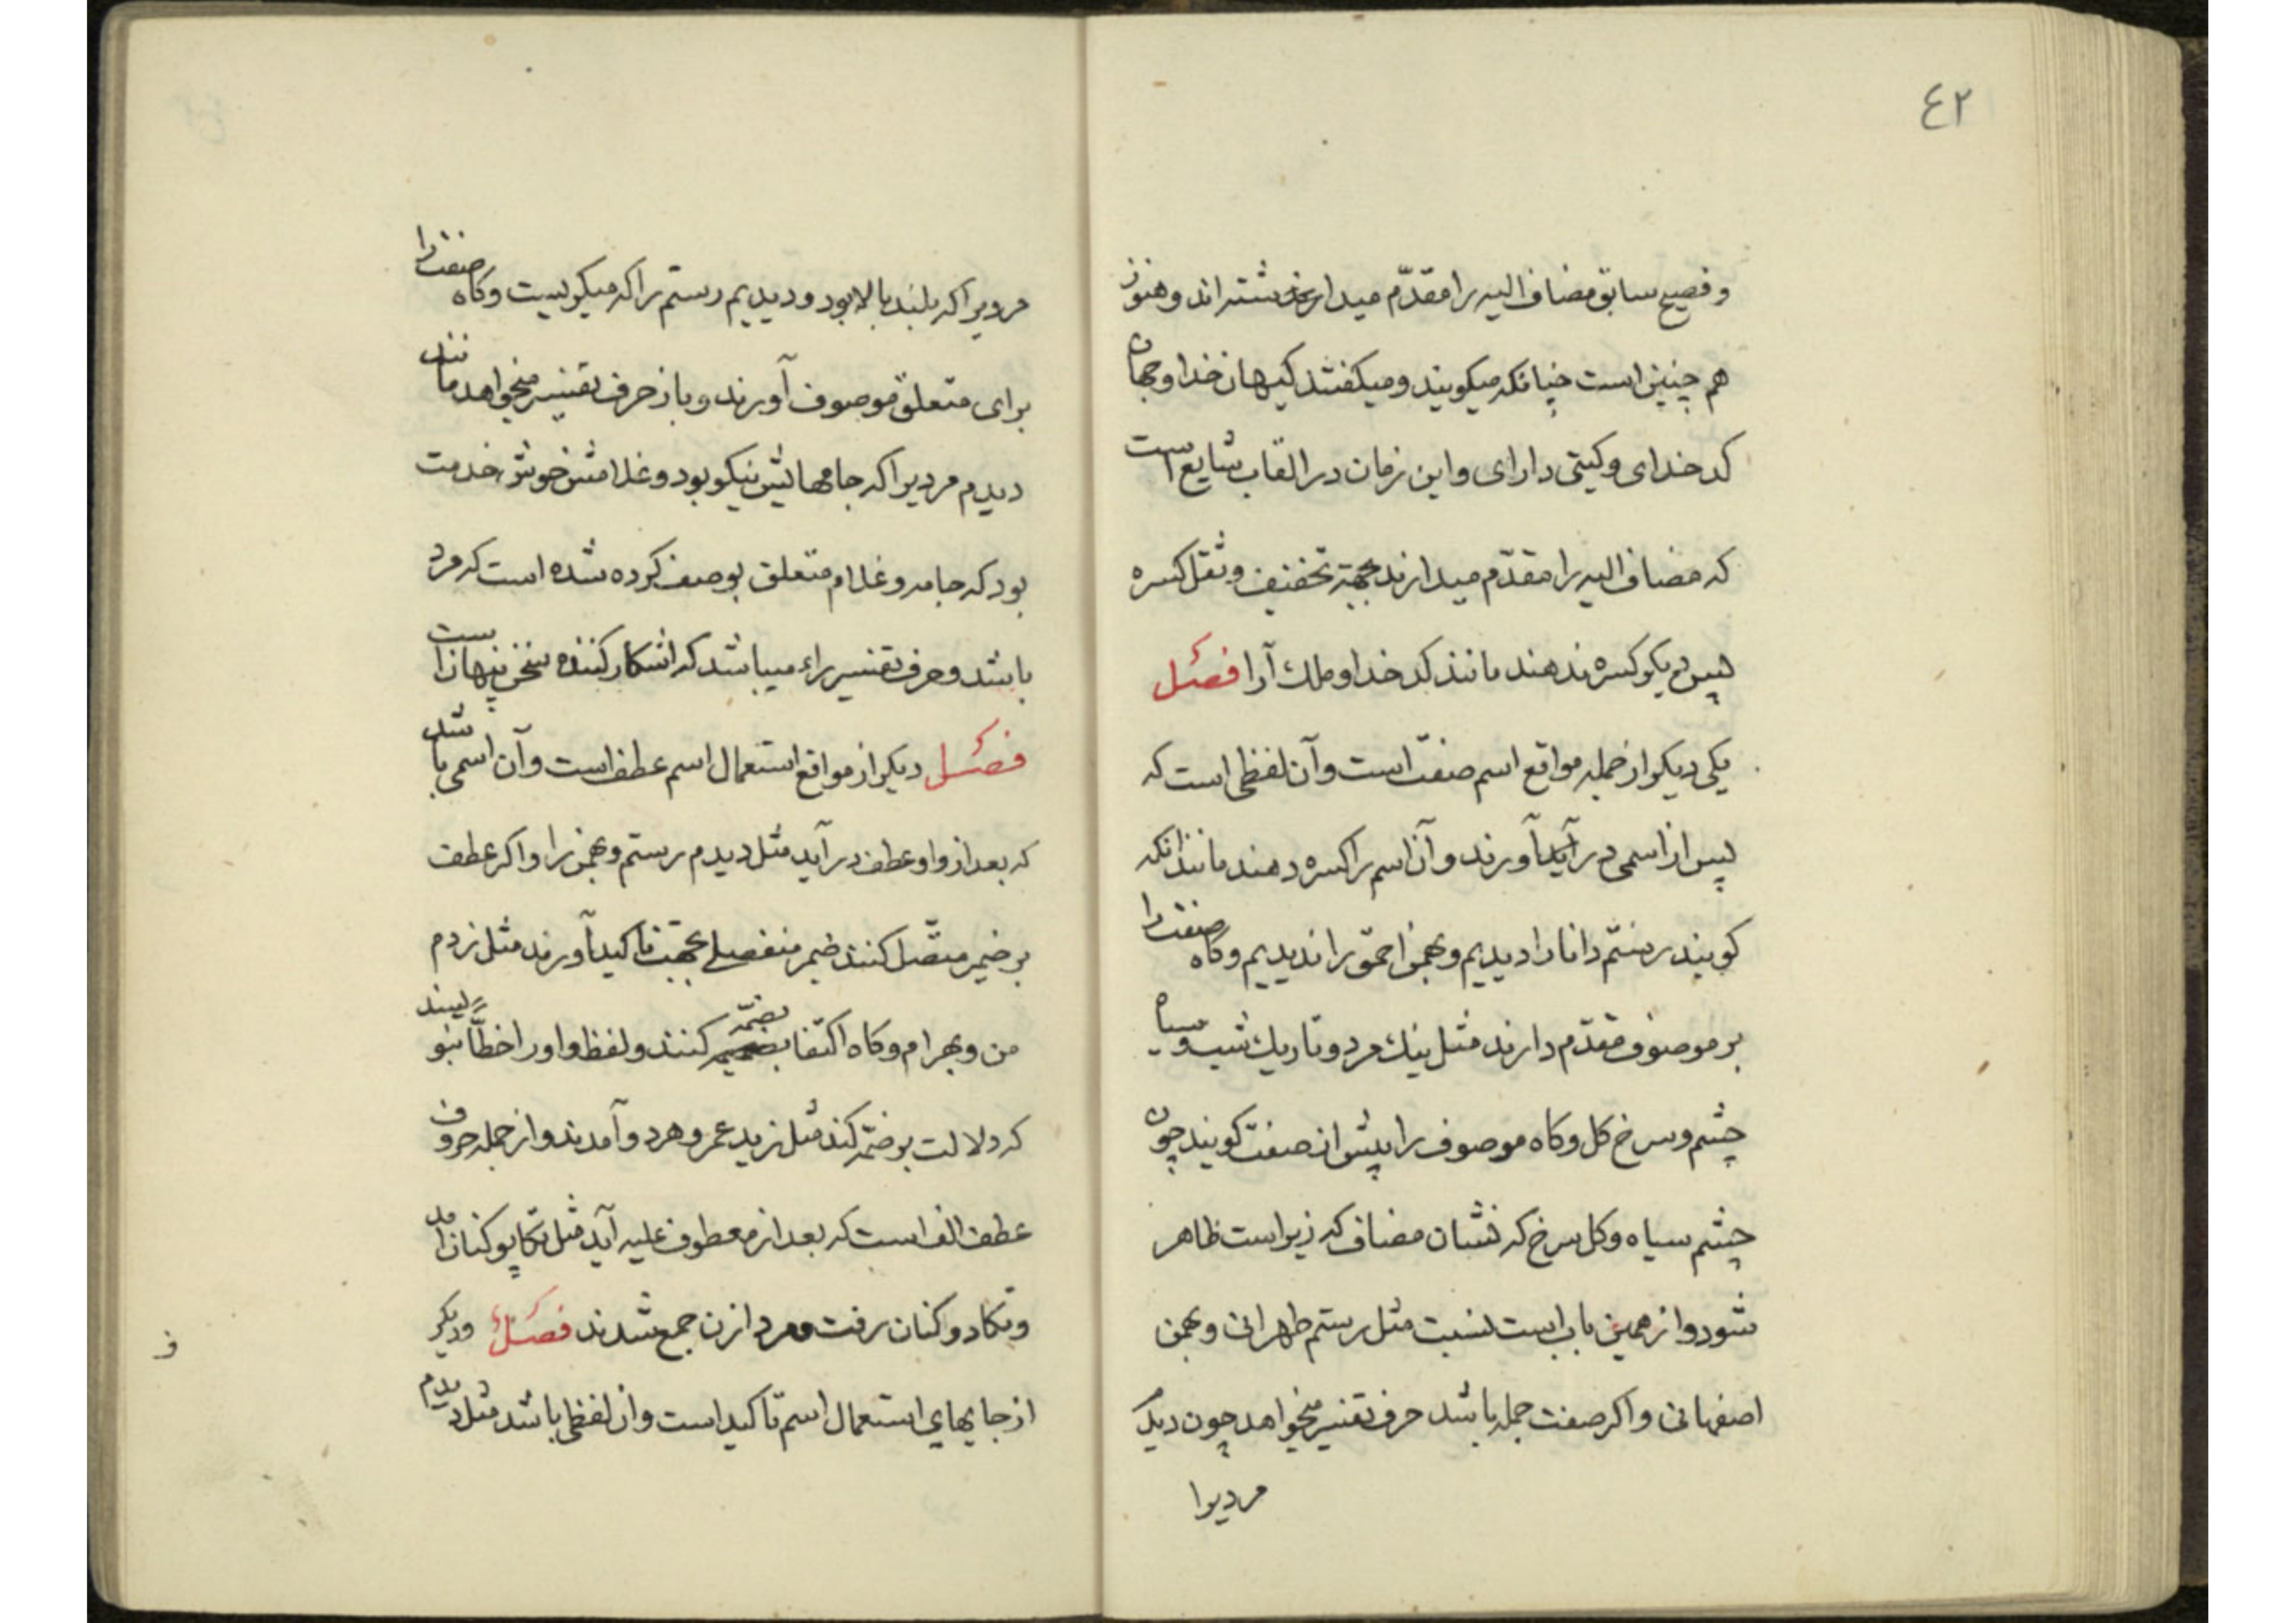 ٤٢
و فصیح سابق مضاف الیه را مقدّم میدار شته اند و هنوز
هم چنین است چنانکه میکویند و میکفتند کیهان خدا و جهان
کدخدای و کیتی دارای و این زمان در القاب شایع است
که مضاف الیه را مقدّم میدارند بجهة تخفیف و ثقل کسره
پس دیکر کسره ندهند مانند کدخدا و ملك آرا فصل
یکی دیکر از جمله مواقع اسم صفت است و آن لفظی است که
پس از اسمی در آید آورند و آن اسم را کسره دهند مانند انکه
کویند رستم دانا را دیدیم و بهمن احمق را ندیدیم و کاه صفت را
بر موصوف مقدّم دارند مثل نیك مرد و تاریك شب و سیاه
چشم و سرخ کل و کاه موصوف را پیش از صفت کویند چون
چشم سیاه و کل سرخ که نشان مضاف که زیر است ظاهر
شود و از همین باب است نسبت مثل رستم طهرانی و بهمن
اصفهانی و اکر صفت جمله باشد حرف تفسیر میخواهد چون دیدم
مردیرا
مردیرا که بلند بالا بود و دیدیم رستم را که میکریست و کاه صفت را
برای متعلق موصوف آورند و باز حرف تفسیر میخواهد مانند
دیدم مردیرا که جامهایش نیکو بود و غلامش خوش خدمت
بود که جامه و غلام متعلق بوصف کرده شده است که مرد
باشد و حرف تفسیر راء میباشد که اشکار کننده سخن پنهان است
فصل دیکر از مواقع استعمال اسم عطف است و آن اسمی باشد
که بعد از واو عطف در آید مثل دیدم رستم و بهمن را و اکر عطف
بر ضمیر متّصل کنند ضمیر منفصلی بجهت تاکید آورند مثل زدم
من و بهرام و کاه اکتفا بضمّه کنند و لفظ واو را خطّاً ننویسند
که دلالت بر ضمّه کند مثل زید عمرو هردو آمدند و از جمله حروف
عطف الف است که بعد از معطوف علیه آید مثل تکاپو کنان امد
و تکادو کنان رفت و مرد ازن جمع شدند فصل و دیکر
از جایهای استعمال اسم تاکید است و ان لفظی باشد مثل دیدم